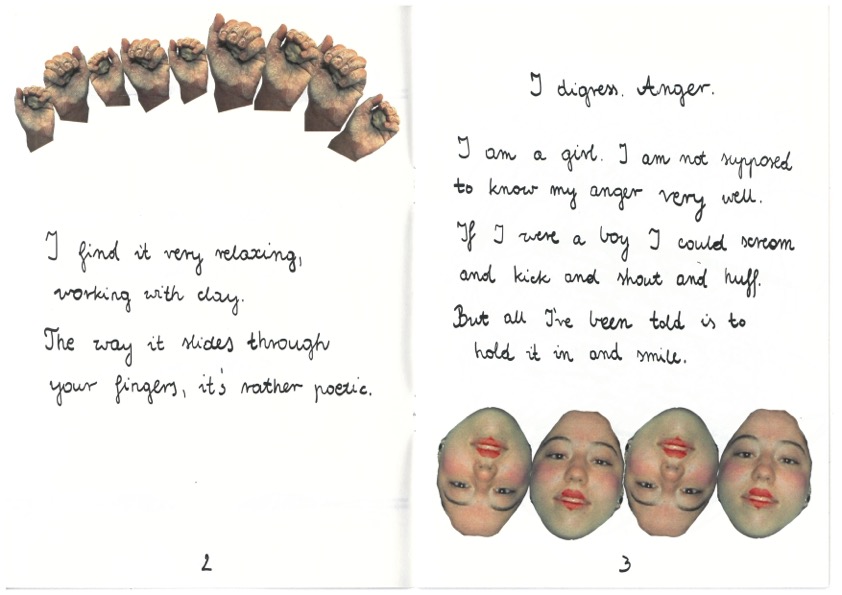 I find it very relaxing,
working with clay.
The way it slides through
your fingers, it's rather poetic.
2
I digress. Anger.
I am a girl. I am not supposed
to know my anger very well.
If I were a boy I could scream
and kick and shout and huff.
But all I've been told is to
hold it in and smile.
3